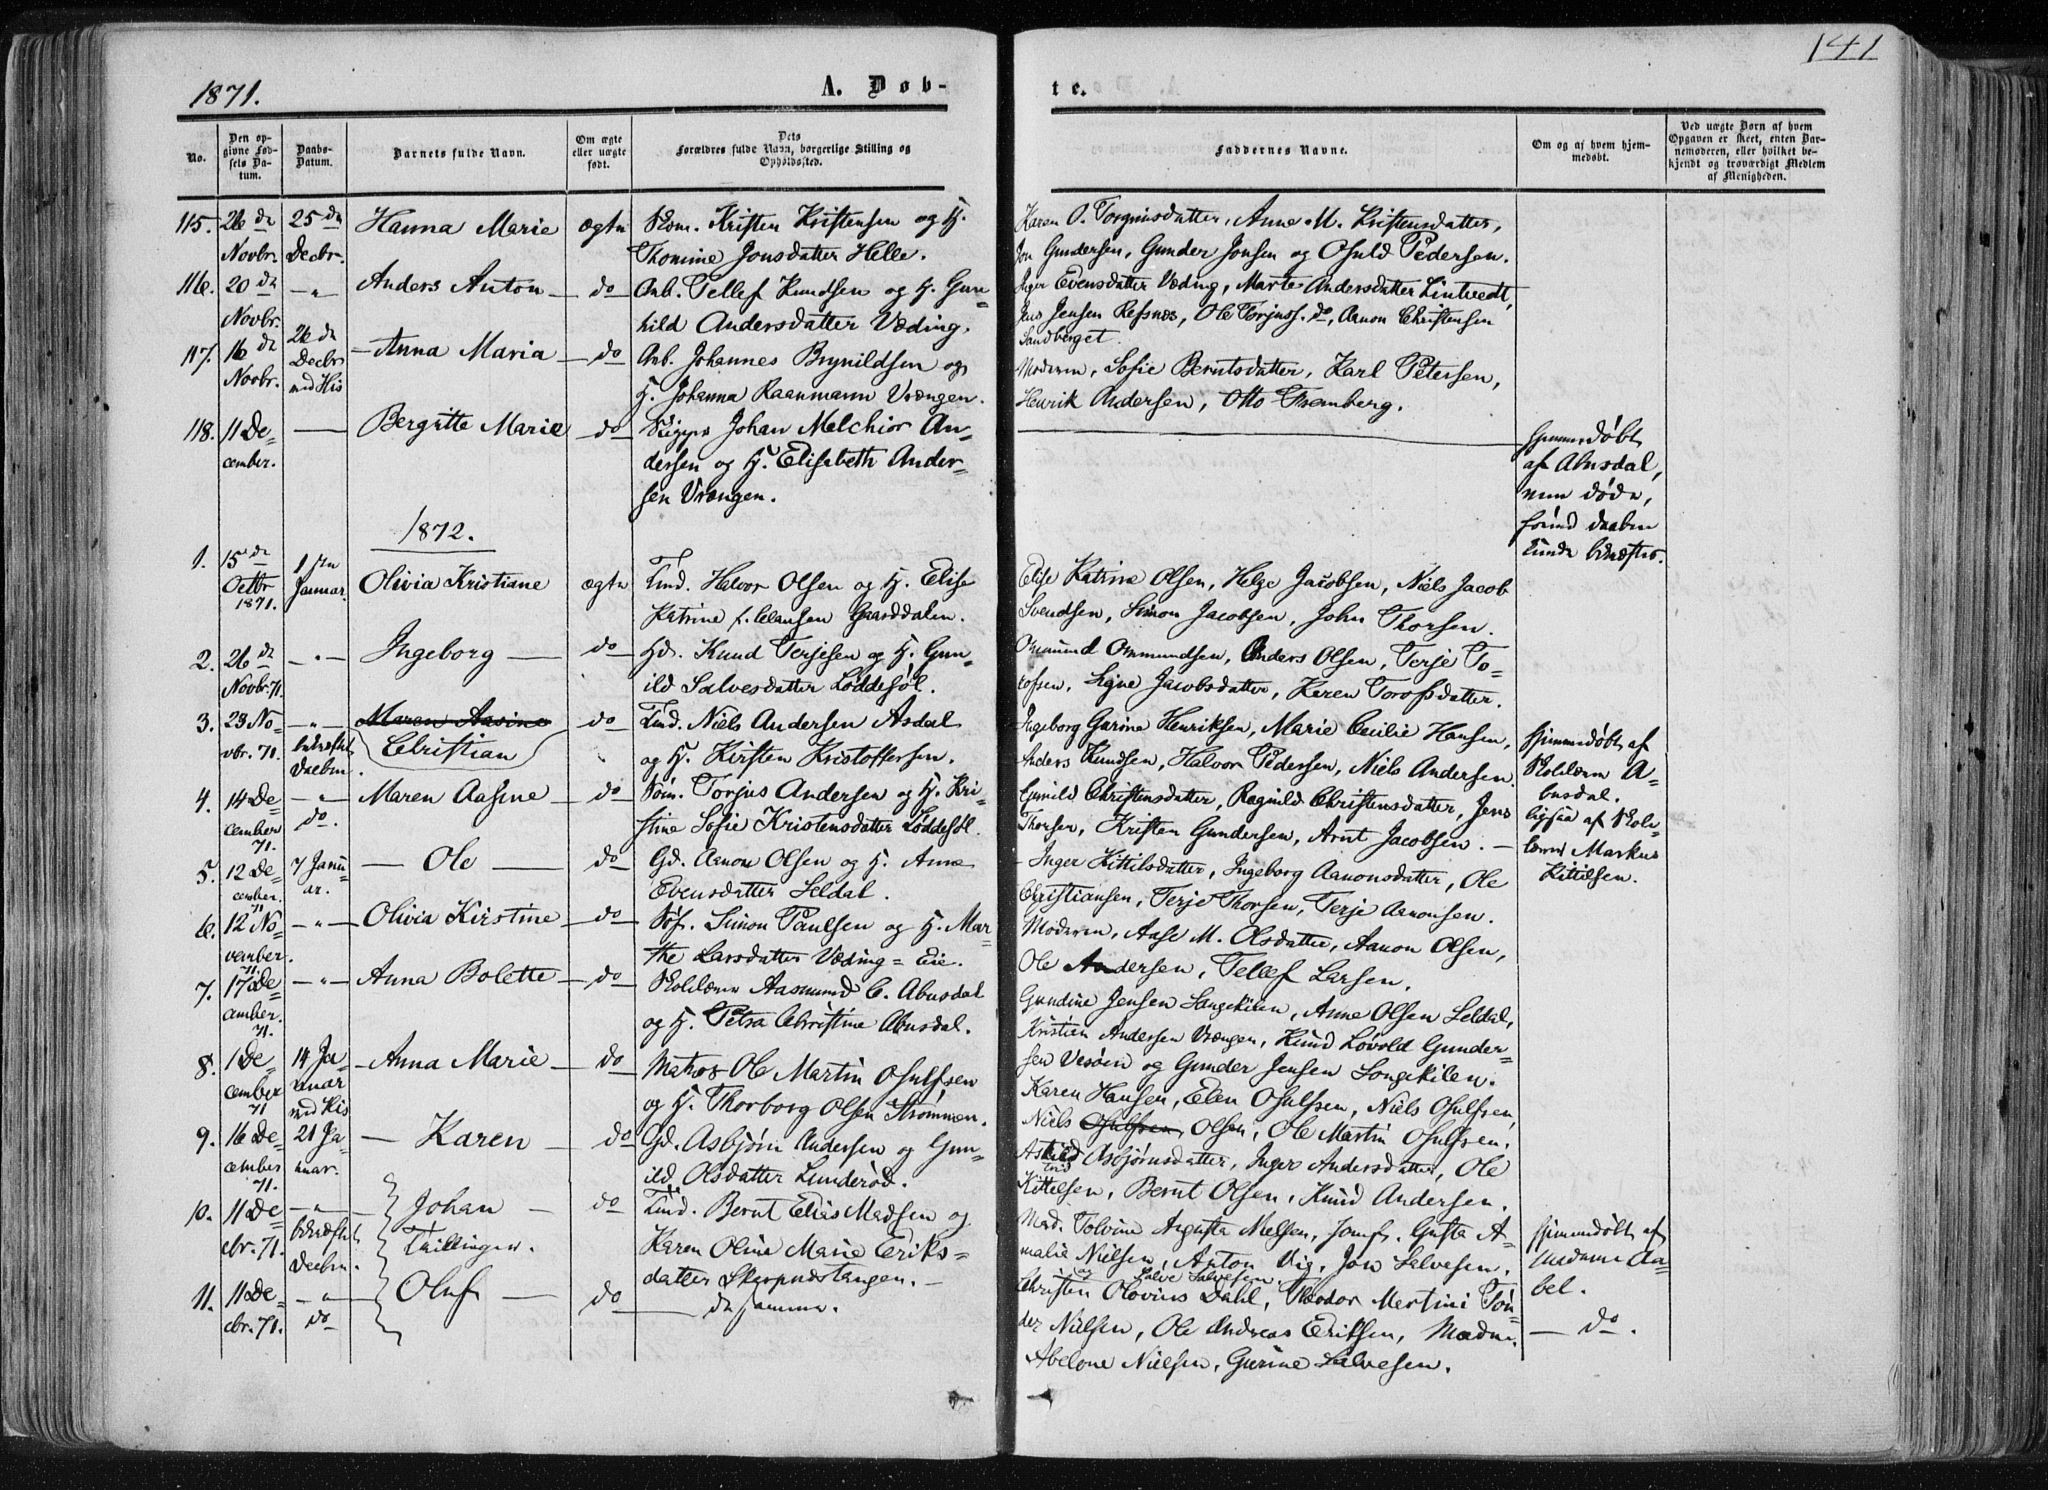 141
1871.
A. Døb-
te.
No.
Den op-
givne Fød-
sels Da-
tum.
Daabs-
Datum.
Barnets fulde Navn.
Om ægte
eller uægte
født.
Dets
Forældres fulde Navn, borgerlige Stilling og
Opholdssted.
Faddernes Navne.
Om og af hvem hjem-
medøbt.
Ved uægte Børn af hvem
Opgaven er skeet, enten Bar-
nemoderen, eller hvilket be-
kjendt og troværdigt Medlem
af Menigheden.
115. 26de Novbr. 25de Decbr. Hanna Marie ægte
Kristen Kristensen og H.
Thomine Jonsdatter Helle.
Karen O. Torgrimsdatter, Anne M. Kristensdatter,
Jon Gundersen, Gunder Jonsen og Osuld Pedersen.
116. 20de Novbr. — " — Anders Anton — do
Arb. Tellef Knudsen og H. Gun-
hild Andersdatter Væding.
Inger Evensdatter Væding, Marte Andersdatter Lintvedt,
Jens Jensen Refsnes, Ole Torjuss. do, Aanon Christensen
Sandberget.
117. 16de Novbr. 26de Decbr. med His — Anna Maria — do
Arb. Johannes Brynildsen og
H. Johanna Raanmann Vrængen.
Moderen, Sofie Berntsdatter, Karl Petersen,
Henrik Andersen, Otto Tremberg.
118. 11 De-
cember. — Bergitte Marie do
Johan Melchior An-
dersen og H. Elisabeth Ander-
sen Vrængen.
Hjemmedøbt
af Abusdal,
men døde,
forind daaben
kunde bekræftes.
1872.
1. 15de Octbr. 1871. 1ste Januar. Olivia Kristiane ægte
Tind. Halvor Olsen og H. Elise
Katrine f. Clausen Gaarddalen.
Elise Katrine Olsen, Helge Jacobsen, Niels Jacob
Svendsen, Simon Jacobsen, John Thorsen.
2. 26de Novbr. 71. — " — Ingeborg — do
Gd. Knud Terjesen og H. Gun-
ild Salvesdatter Løddesøl.
Omund Ommundsen, Anders Olsen, Terje To-
rofsen, Signe Jacobsdatter, Karen Torofsdatter.
3. 23 No-
vbr. 71. — " — bekræftet Daaben. Maren Aasine do
Christian
Tind. Niels Andersen Asdal
og H. Kirsten Kristoffersen.
Ingeborg Gurine Henriksen, Marie Cecilie Hansen,
Anders Knudsen, Halvor Pedersen, Niels Andersen.
Hjemmedøbt af
Skolelærer A-
busdal.
4. 14 De-
cember 71. — " — do. Maren Aasine — do
Tøm. Torjus Andersen og H. Kri-
stine Sofie Kristensdatter Løddesøl.
Gunild Christensdatter, Ragnild Christensdatter, Jens
Thorsen, Kristen Gundersen, Arnt Jacobsen. —
ligesaa af Skole-
lærer Markus
Kittilsen.
5. 12 De-
cember. 71 7 Janu-
ar. — Ole — do
Gd. Aanon Olsen og H. Anne
Evensdatter Seldal.
— Inger Kittilsdatter, Ingeborg Aanonsdatter, Ole
Christiansen, Terje Thorsen, Terje Aanonsen.
6. 12 No-
vember. 71. — " — Olivia Kirstine — do
Søf. Simon Paulsen og H. Mar-
the Larsdatter Væding = Eie.
Moderen, Aase M. Olsdatter, Aanon Olsen,
Ole Andersen, Tellef Larsen.
7. 17 De-
cember. 71. — " — Anna Bolette — do
Skolelærer Aasmund C. Abusdal
og H. Petra Christine Abusdal.
Gundine Jensen Langekilen, Anne Olsen Seldal,
Kristien Andersen Vrængen, Knud Lovold Gunder-
sen Vesøen og Gunder Jensen Longekilen.
8. 1 De-
cember 71 14 Ja-
nuar med His — Anna Marie — do
Matros Ole Martin Osulfsen
og H. Thorborg Olsen Strømmen.
Karen Hansen, Elen Osulfsen, Niels Osulfsen,
Niels Osulfsen, Olsen, Ole Martin Osulfsen.
9. 16 De-
cember 71. 21 Ja-
nuar. — Karen — do
Gd. Asbjørn Andersen og Gun-
ild Olsdatter Lunderød.
Askild Asbjørnsdatter, Inger Andersdatter, Ole
Kittelsen, Bernt Olsen, Knud Andersen.
10. 11 De-
cbr. 71. — " — bekræftet Daaben Johan — do
Tvillinger.
Tind. Bernt Elias Madsen og
Karen Oline Marie Eriks-
datter Skarpnæstangen. —
Mad. Tolvine Augusta Nielsen, Jomf. Gusta A-
malie Nielsen, Anton Vig, Jon Salvesen.
og Salve Salvesen.
Hjemmedøbt af
Madame Aa-
bel.
11. 11 De-
cbr. 71. — " — do Oluf — do
— de samme.
Christen Olovius Dahl, Theodor Martini Tøn-
der Nielsen, Ole Andreas Eriksen, Madm.
Abelone Nielsen, Gurine Salvesen.
— do.